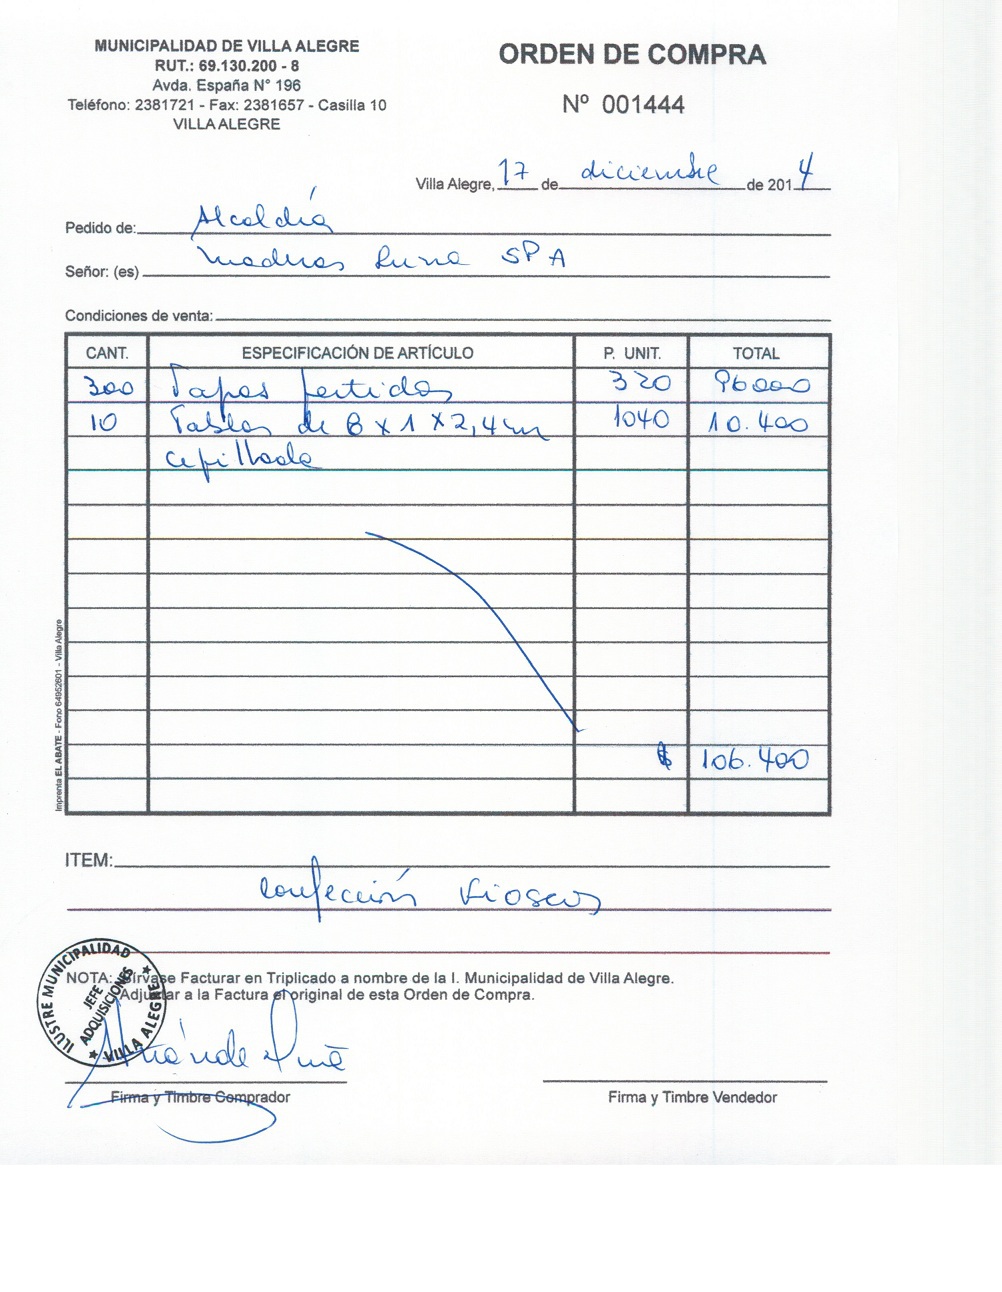 MUNICIPALIDAD DE VILLA ALEGRE
RUT.: 69.130.200 - 8
Avda. España N° 196
Teléfono: 2381721 - Fax: 2381657 - Casilla 10
VILLA ALEGRE
ORDEN DE COMPRA
Nº 001444
Villa Alegre, 17 de diciembre de 2014
Pedido de: Alcaldía
Señor: (es) Maderas Luna SPA
Condiciones de venta:
CANT. ESPECIFICACIÓN DE ARTÍCULO P. UNIT. TOTAL
300 Tapas partidas 320 96000
10 Tablas de 8 x 1 x 2,4 1040 10.400
cepillada
$ 106.400
Imprenta EL ABATE - Fono 64952601 - Villa Alegre
ITEM:
Confección Kioscos
NOTA: Sírvase Facturar en Triplicado a nombre de la I. Municipalidad de Villa Alegre.
Adjuntar a la Factura el original de esta Orden de Compra.
ILUSTRE MUNICIPALIDAD
JEFE
ADQUISICIONES
VILLA ALEGRE
Firma y Timbre Comprador
Firma y Timbre Vendedor